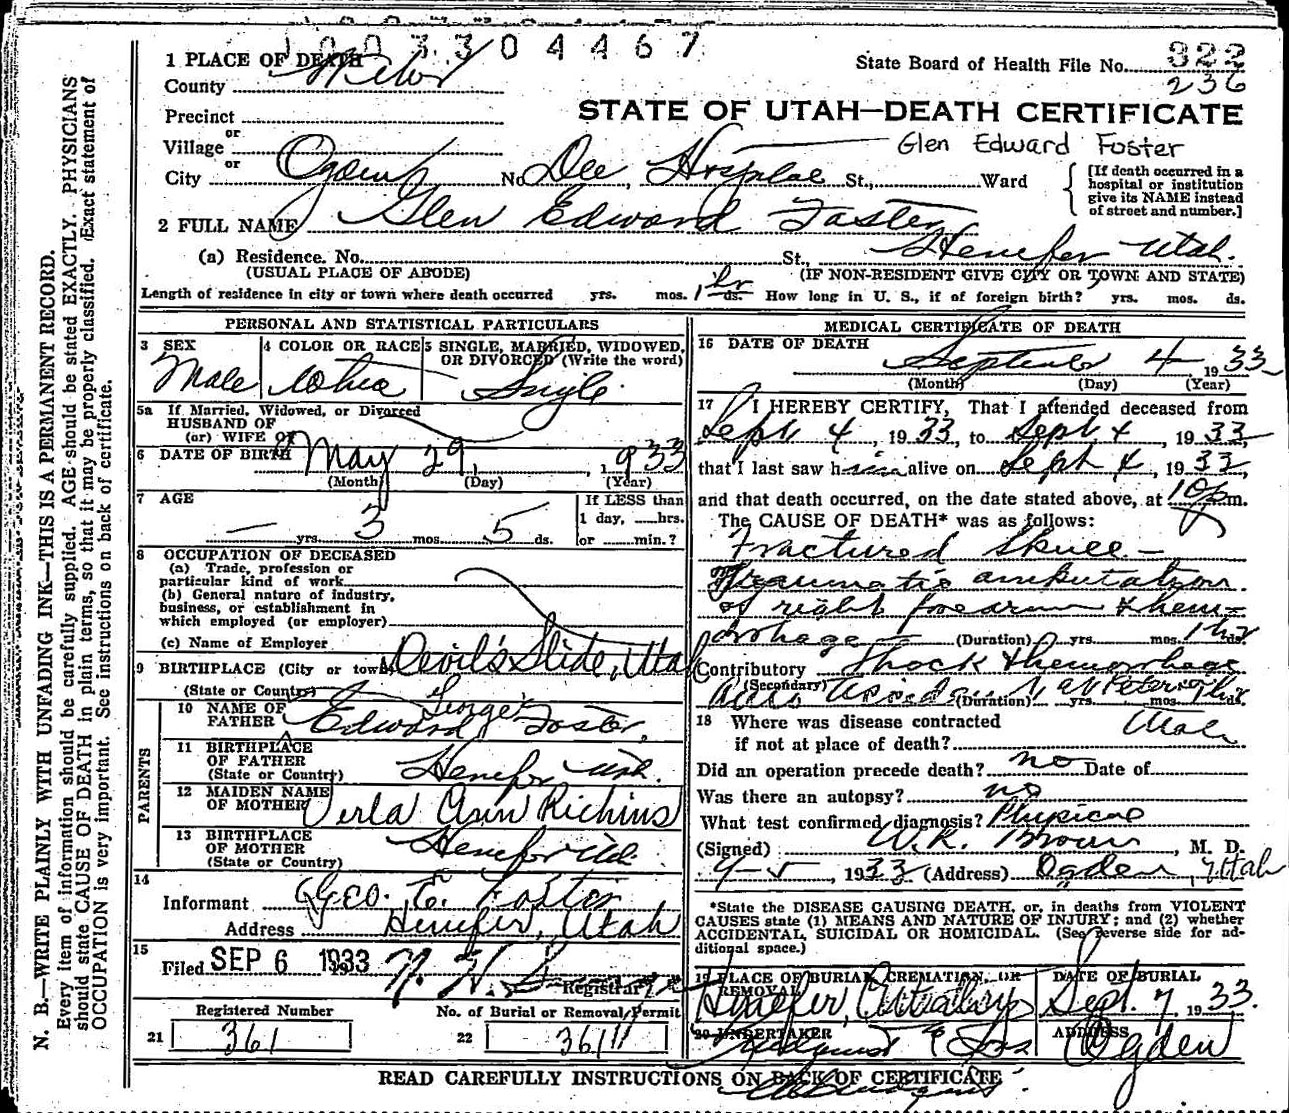 1003304467
1 PLACE OF DEATH
County Weber
State Board of Health File No. 322
236
STATE OF UTAH—DEATH CERTIFICATE
Precinct
or
Village
Glen Edward Foster
or
City Ogden No. Dee Hospital St., Ward
[If death occurred in a hospital or institution give its NAME instead of street and number.]
2 FULL NAME Glen Edward Foster
(a) Residence. No. St., Henefer Utah.
(USUAL PLACE OF ABODE) (IF NON-RESIDENT GIVE CITY OR TOWN AND STATE)
Length of residence in city or town where death occurred yrs. mos. 1 hr ds. How long in U. S., if of foreign birth? yrs. mos. ds.
PERSONAL AND STATISTICAL PARTICULARS
3 SEX 4 COLOR OR RACE 5 SINGLE, MARRIED, WIDOWED, OR DIVORCED (Write the word)
Male White Single
5a If Married, Widowed, or Divorced
HUSBAND OF
(or) WIFE OF
6 DATE OF BIRTH May 29, 1933
(Month) (Day) (Year)
7 AGE
— yrs. 3 mos. 5 ds.
If LESS than
1 day, hrs.
or min.?
8 OCCUPATION OF DECEASED
(a) Trade, profession or
particular kind of work
(b) General nature of industry,
business, or establishment in
which employed (or employer)
(c) Name of Employer
9 BIRTHPLACE (City or town) Devil's Slide, Utah
(State or Country)
PARENTS
10 NAME OF FATHER George Edward Foster
11 BIRTHPLACE
OF FATHER Henefer Utah.
(State or Country)
12 MAIDEN NAME
OF MOTHER Verla Ann Richins
13 BIRTHPLACE
OF MOTHER Henefer Ud.
(State or Country)
14
Informant Geo. E. Foster
Address Henefer, Utah
15
Filed SEP 6 1933
Registrar
Registered Number No. of Burial or Removal Permit
21 361 22 361
MEDICAL CERTIFICATE OF DEATH
16 DATE OF DEATH
September 4 1933
(Month) (Day) (Year)
17 I HEREBY CERTIFY, That I attended deceased from
Sept 4, 1933, to Sept 4, 1933
that I last saw him alive on Sept 4, 1933,
and that death occurred, on the date stated above, at 10 pm.
The CAUSE OF DEATH* was as follows:
Fractured Skull —
Traumatic amputation
of right forearm & hem-
orrhage (Duration) yrs. mos. 1 hr ds.
Contributory Shock & hemorrhage
(Secondary) Auto (Duration) yrs. mos. ds.
18 Where was disease contracted
if not at place of death? Utah
Did an operation precede death? no Date of
Was there an autopsy? no
What test confirmed diagnosis? Physical
(Signed) W.R. Brown, M. D.
9-5, 1933 (Address) Ogden, Utah
*State the DISEASE CAUSING DEATH, or, in deaths from VIOLENT
CAUSES state (1) MEANS AND NATURE OF INJURY; and (2) whether
ACCIDENTAL, SUICIDAL OR HOMICIDAL. (See reverse side for ad-
ditional space.)
19 PLACE OF BURIAL, CREMATION, OR REMOVAL DATE OF BURIAL
Henefer, Cemetery Sept. 7, 1933.
20 UNDERTAKER ADDRESS
Lindquist & Sons Ogden
READ CAREFULLY INSTRUCTIONS ON BACK OF CERTIFICATE
N. B.—WRITE PLAINLY WITH UNFADING INK—THIS IS A PERMANENT RECORD.
Every item of information should be carefully supplied. AGE should be stated EXACTLY. PHYSICIANS
should state CAUSE OF DEATH in plain terms, so that it may be properly classified. Exact statement of
OCCUPATION is very important. See instructions on back of certificate.